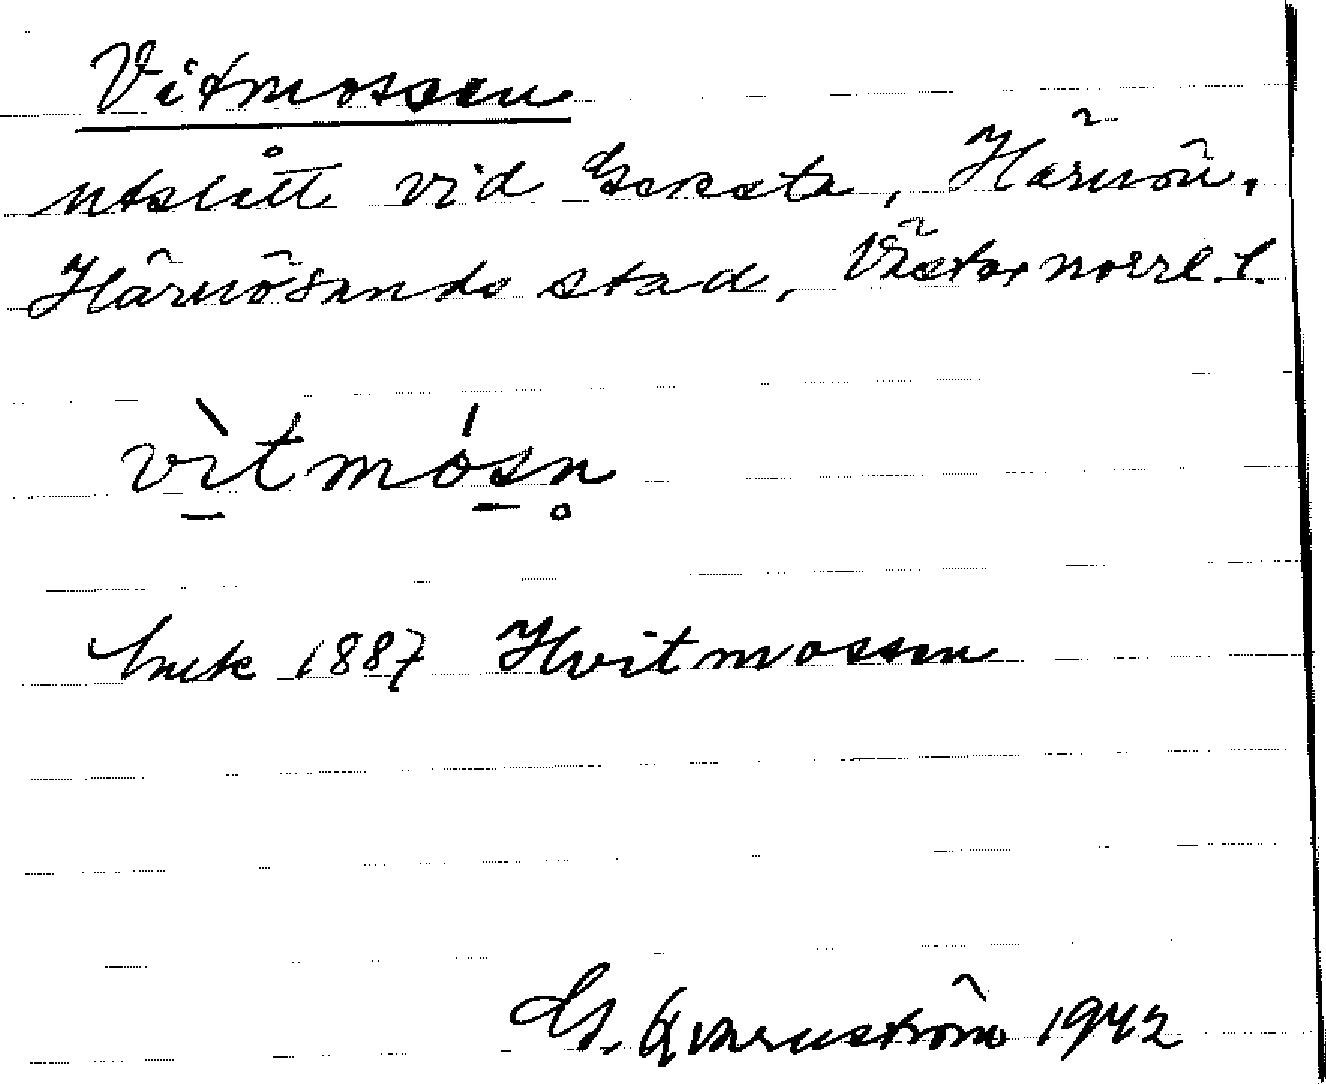 Vitmossen
utslått vid Geresta, Härnön,
Härnösands stad, Västernorrl. l.
vìtmósn̥
lmk 1887 Hvitmossen
G. Qvarnström 1942